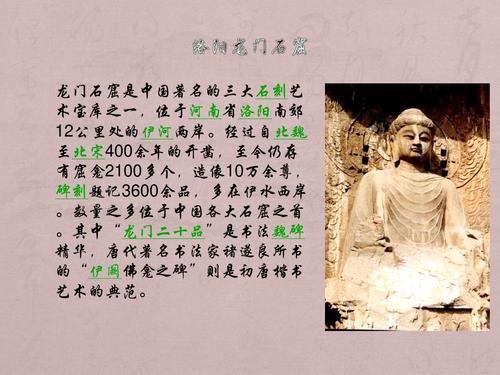 洛阳龙门石窟
龙门石窟是中国著名的三大石刻艺
术宝库之一，位于河南省洛阳南郊
12公里处的伊河两岸。经过自北魏
至北宋400余年的开凿，至今仍存
有窟龛2100多个，造像10万余尊，
碑刻题记3600余品，多在伊水西岸
。数量之多位于中国各大石窟之首
。其中“龙门二十品”是书法魏碑
精华，唐代著名书法家褚遂良所书
的“伊阙佛龛之碑”则是初唐楷书
艺术的典范。